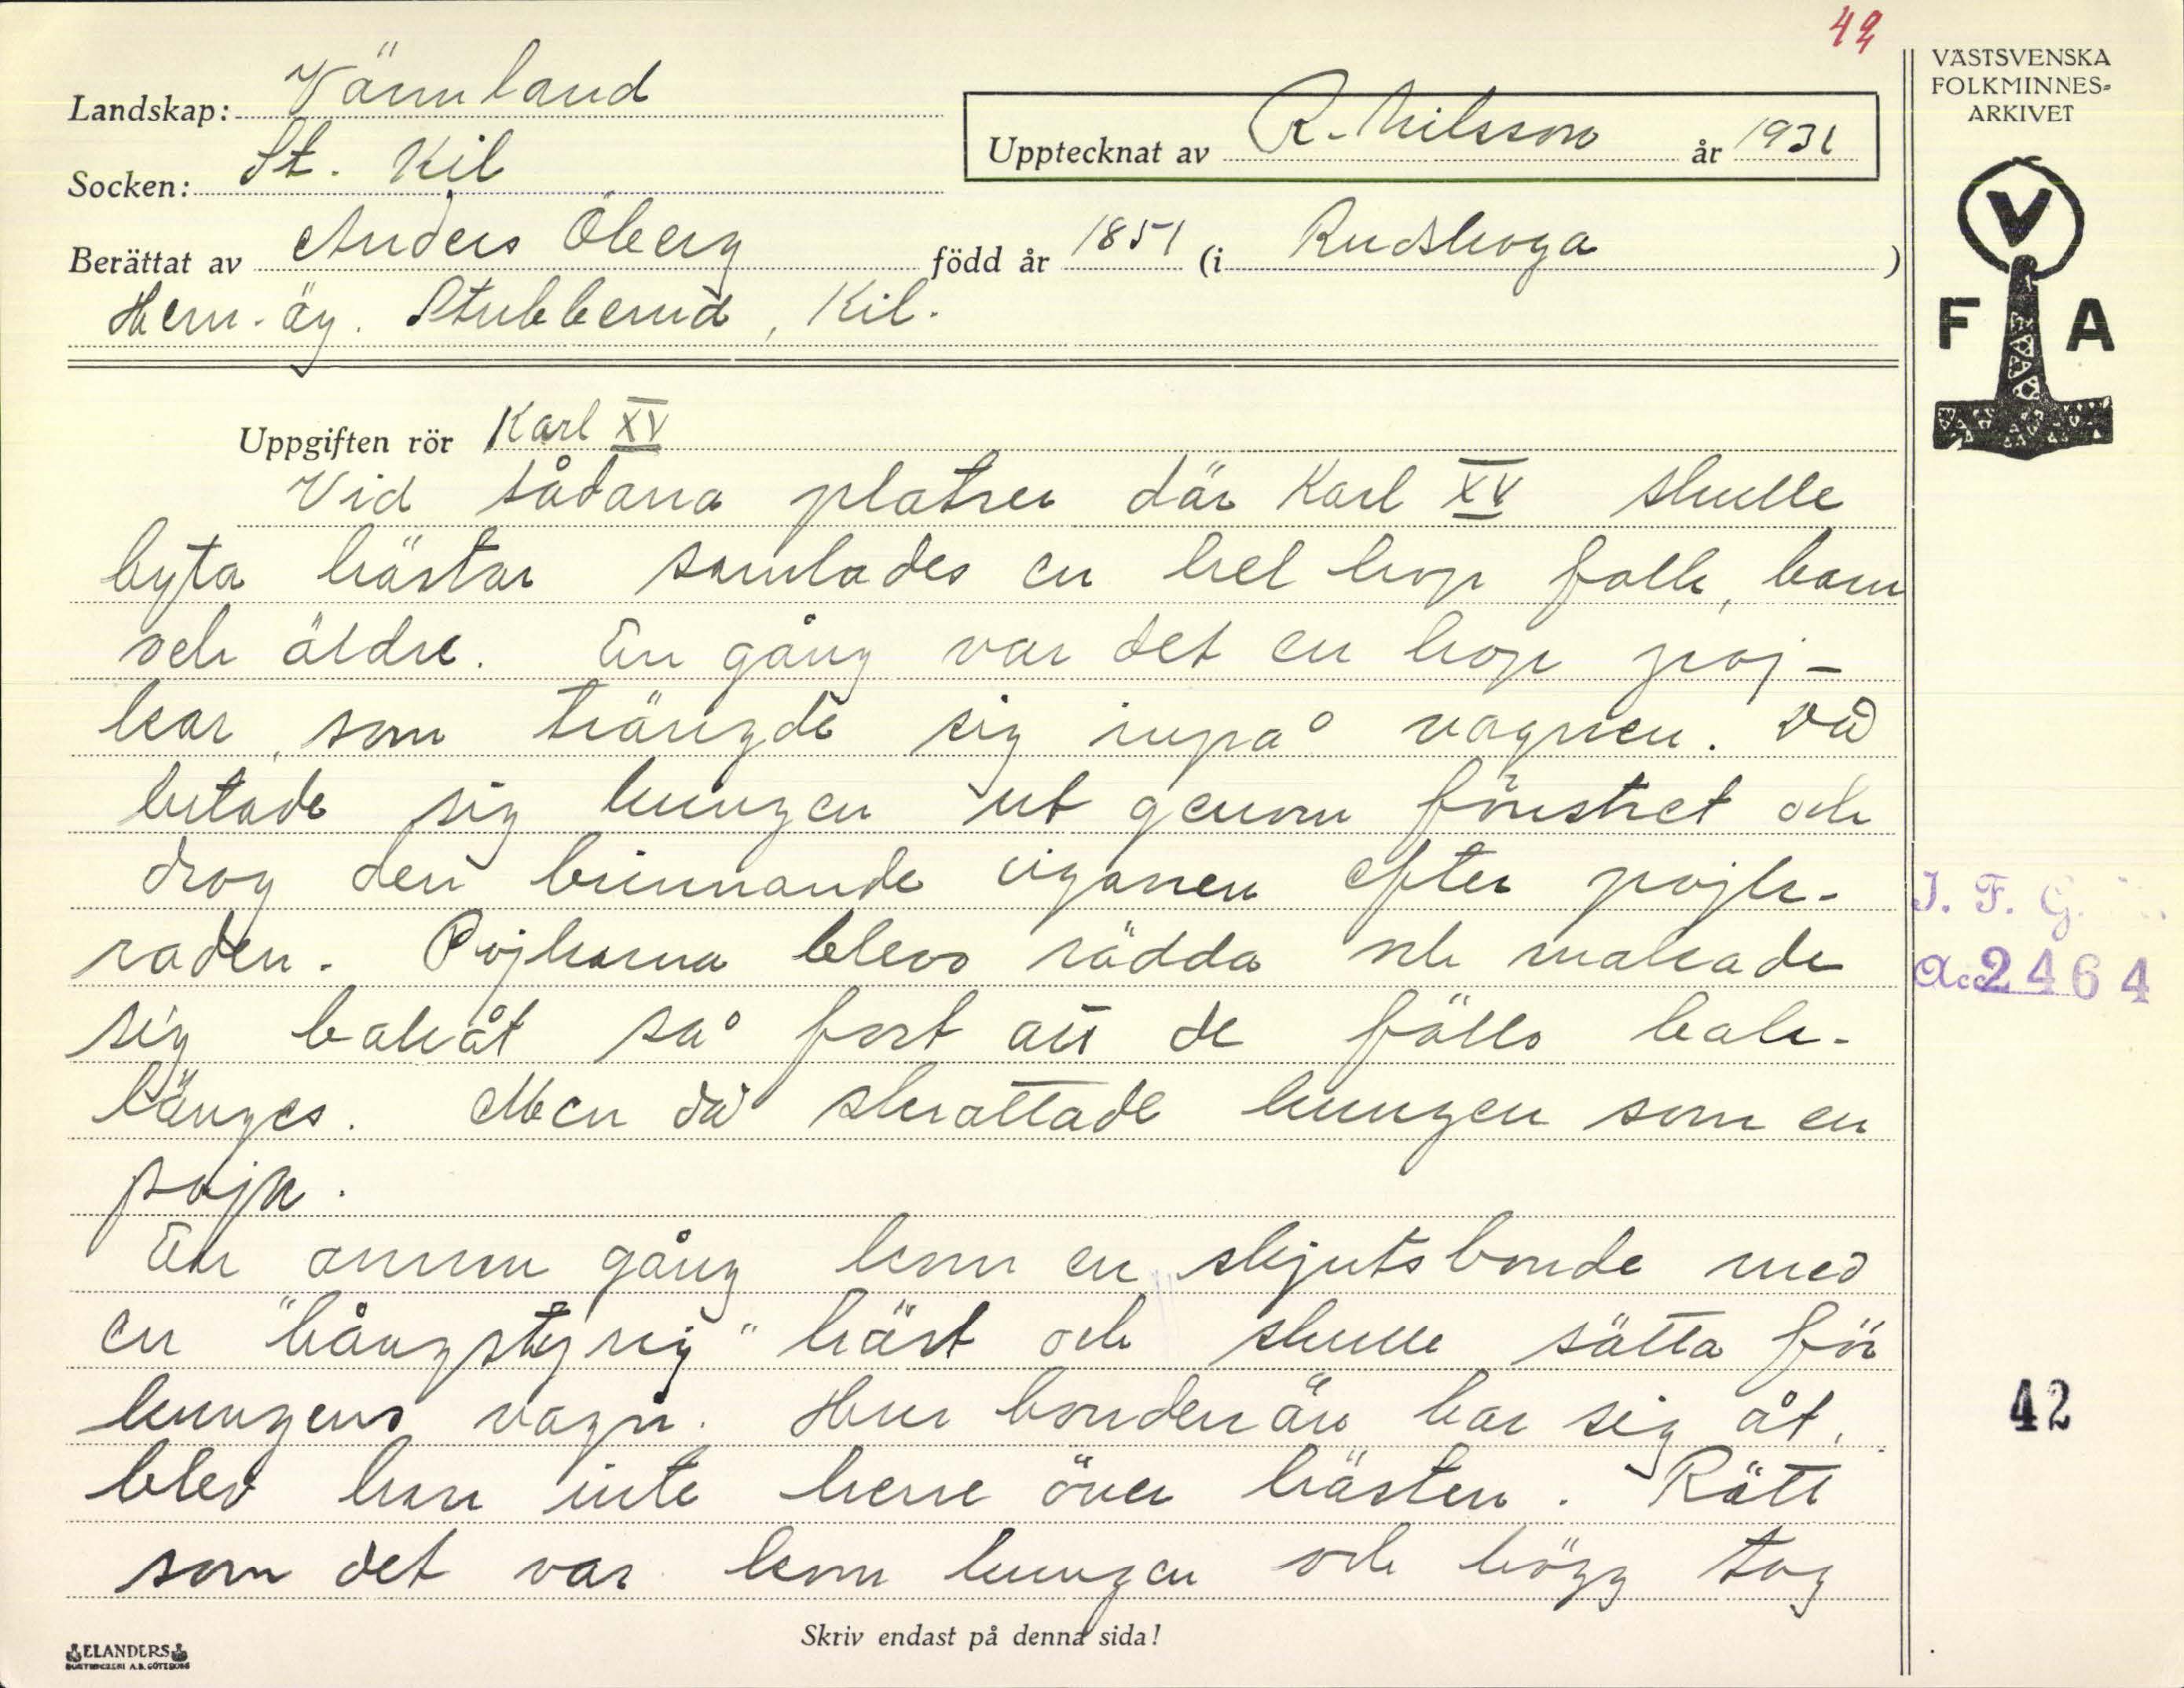 42
Landskap: Värmland
Socken: St. Kil
Upptecknat av R. Nilsson år 1931
Berättat av Anders Öberg född år 1851 (i Rudskoga)
Hem.-äg. Stubberud, Kil.
VÄSTSVENSKA
FOLKMINNES-
ARKIVET
V
F A
Uppgiften rör Karl XV
Vid sådana platser där Karl XV skulle
byta hästar samlades en hel hop folk, barn
och äldre. En gång var det en hop poj-
kar, som trängde sig inpå vagnen. Då
lutade sig kungen ut genom fönstret och
drog den brinnande cigarren efter pojk-
raden. Pojkarna blevo rädda och makade
sig bakåt så fort att de föllo bak-
länges. Men då skrattade kungen som en
pojk.
En annan gång kom en skjutsbonde med
en "hångstyrig" häst och skulle sätta för
kungens vagn. Hur bonden än bar sig åt,
blev han inte herre över hästen. Rätt
som det var kom kungen och högg tag
I. F. G.
Acc 2464
42
Skriv endast på denna sida!
ELANDERS
BOKTRYCKERI A.B. GÖTEBORG